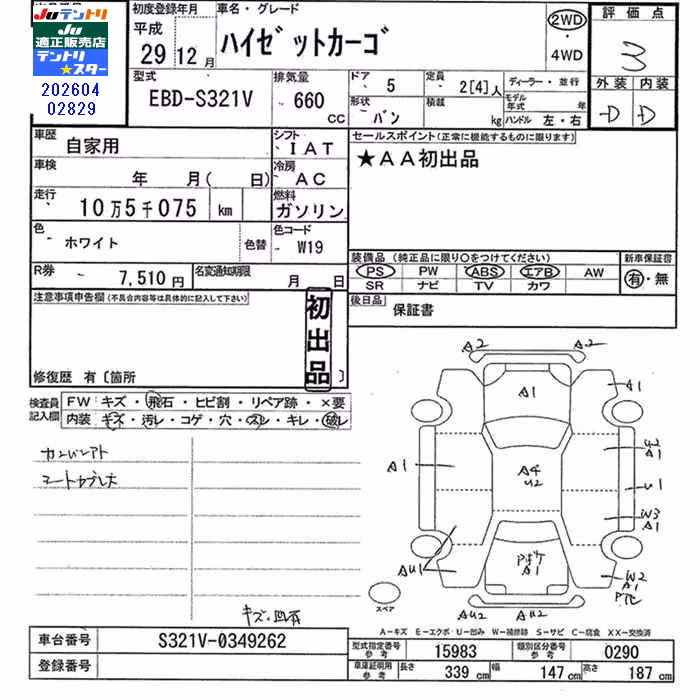 JUテントリ
JU
適正販売店
テントリ
★スター
202604
02829
初度登録年月
平成
29 12 月
車名・グレード
ハイゼットカーゴ
2WD
4WD
評価点
3
外装 内装
D D
型式
EBD-S321V
排気量
660
CC
ドア 5
定員 2[4]人
形状 バン
積載 kg
ディーラー・並行
モデル年式 年
ハンドル 左・右
車歴 自家用
シフト IAT
セールスポイント(正常に機能するものに限ります)
★AA初出品
車検 年 月( 日)
冷房 AC
走行 10万5千075 km
燃料 ガソリン
色 ホワイト 色替
色コード W19
R券 7,510円
名変通知期限 月 日
装備品(純正品に限り○をつけてください)
PS PW ABS エアB AW
SR ナビ TV カワ
新車保証書
有・無
後日品 保証書
注意事項申告欄(不具合内容等は具体的に記入して下さい)
初出品
修復歴 有〔箇所 〕
検査員記入欄
FW キズ・飛石・ヒビ割・リペア跡・×要
内装 キズ・汚レ・コゲ・穴・スレ・キレ・破レ
A2 A2
A1 A1
U2
A1
A1
A4
U2
U1
W3
A1
AU1
A1
W2
AU2 AU2
スペア
A－キズ E－エクボ U－凹み W－補修跡 S－サビ C－腐食 XX－交換済
車台番号 S321V-0349262
登録番号
型式指定番号 参考 15983
類別区分番号 参考 0290
車庫証明用 参考 長さ 339 cm 幅 147 cm 高さ 187 cm